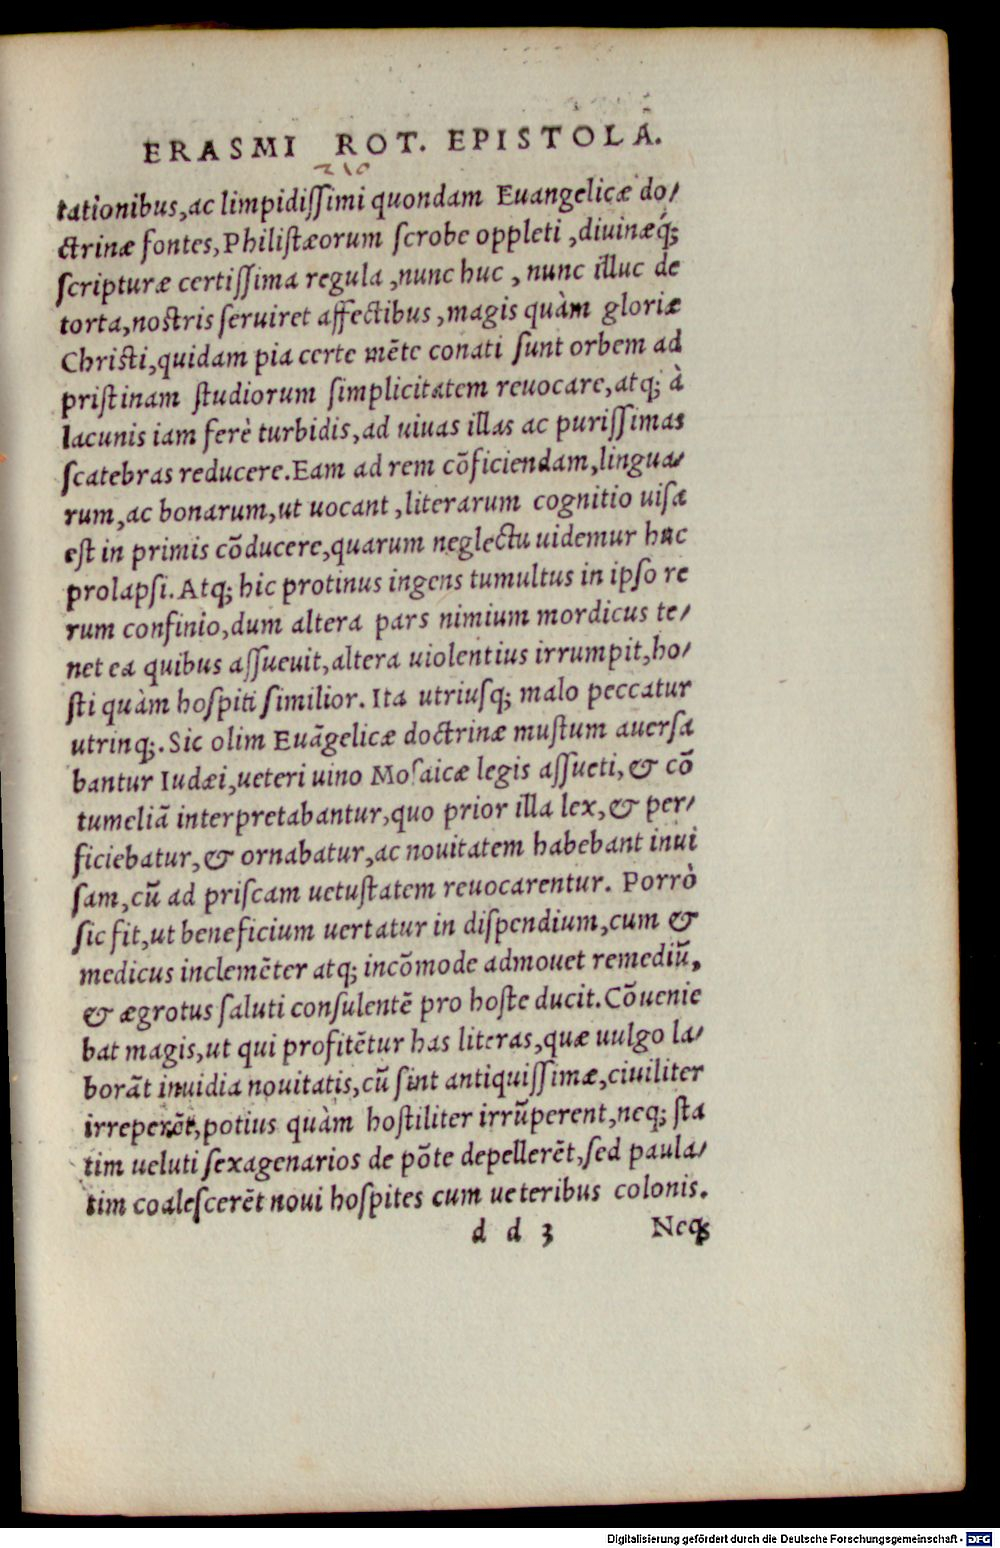 ERASMI ROT. EPISTOLA.
210
tationibus, ac limpidißimi quondam Euangelicæ do⸗
ctrinæ fontes, Philistæorum scrobe oppleti, diuinæq́;
scripturæ certißima regula, nunc huc, nunc illuc de
torta, nostris seruiret affectibus, magis quàm gloriæ
Christi, quidam pia certe mẽte conati sunt orbem ad
pristinam studiorum simplicitatem reuocare, atq; à
lacunis iam ferè turbidis, ad uiuas illas ac purißimas
scatebras reducere. Eam ad rem cõficiendam, lingua⸗
rum, ac bonarum, ut uocant, literarum cognitio uisa
est in primis cõducere, quarum neglectu uidemur huc
prolapsi. Atq; hic protinus ingens tumultus in ipso re
rum confinio, dum altera pars nimium mordicus te⸗
net ea quibus assueuit, altera uiolentius irrumpit, ho⸗
sti quàm hospiti similior. Ita utriusq; malo peccatur
utrinq;. Sic olim Euãgelicæ doctrinæ mustum auersa
bantur Iudæi, ueteri uino Mosaicæ legis assueti, & cõ
tumeliã interpretabantur, quo prior illa lex, & per⸗
ficiebatur, & ornabatur, ac nouitatem habebant inui
sam, cũ ad priscam uetustatem reuocarentur. Porrò
sic fit, ut beneficium uertatur in dispendium, cum &
medicus inclemẽter atq; incõmode admouet remediũ,
& ægrotus saluti consulentẽ pro hoste ducit. Cõuenie
bat magis, ut qui profitẽtur has literas, quæ uulgo la⸗
borãt inuidia nouitatis, cũ sint antiquißimæ, ciuiliter
irreperẽt, potius quàm hostiliter irrũperent, neq; sta
tim ueluti sexagenarios de põte depellerẽt, sed paula⸗
tim coalescerẽt noui hospites cum ueteribus colonis.
d d 3 Neq;
Digitalisierung gefördert durch die Deutsche Forschungsgemeinschaft - DFG